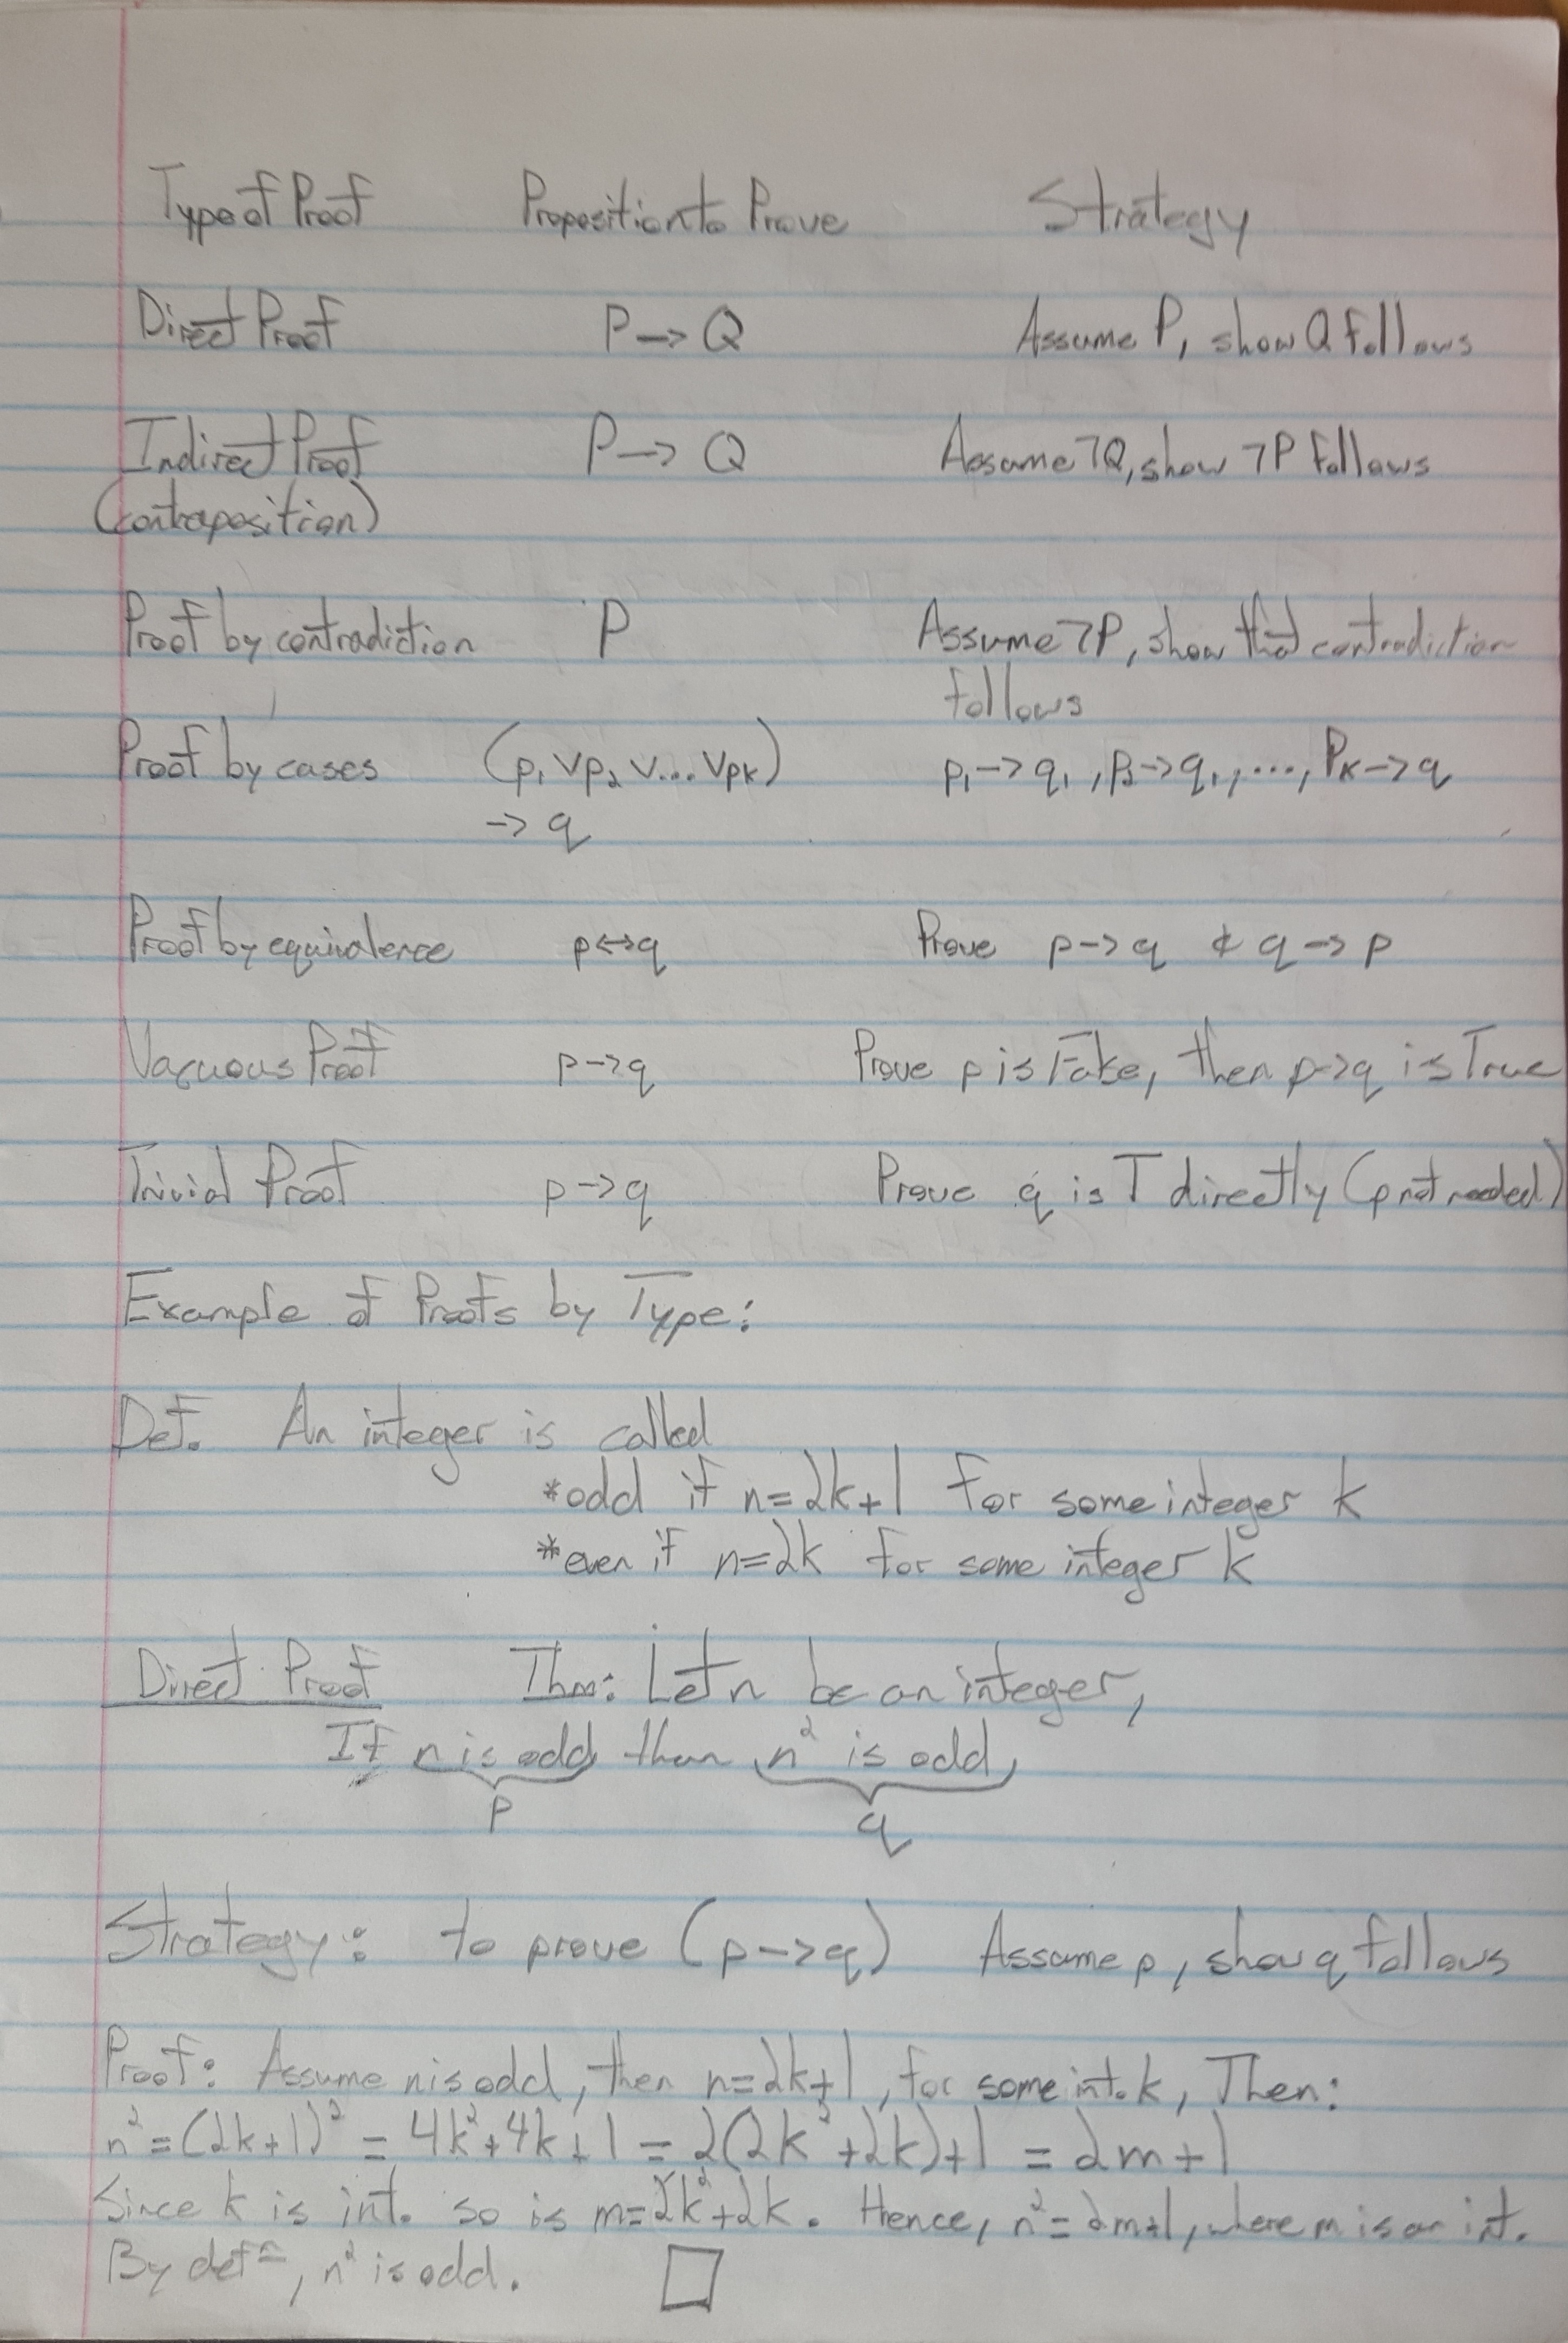 Type of Proof Proposition to Prove Strategy
Direct Proof P → Q Assume P, show Q follows
Indirect Proof P → Q Assume ¬Q, show ¬P follows
(contraposition)
Proof by contradiction P Assume ¬P, show that contradiction
follows
Proof by cases (p₁ ∨ p₂ ∨ ... ∨ pₖ) p₁ → q₁, p₂ → q₁, ..., Pₖ → q
→ q
Proof by equivalence p ↔ q Prove p → q & q → p
Vacuous Proof p → q Prove p is False, then p → q is True
Trivial Proof p → q Prove q is T directly (p not needed)
Example of Proofs by Type:
Def. An integer is called
*odd if n=2k+1 for some integer k
*even if n=2k for some integer k
Direct Proof Thm: Let n be an integer,
If n is odd than n² is odd
p q
Strategy: to prove (p → q) Assume p, show q follows
Proof: Assume n is odd, then n=2k+1, for some int. k, Then:
n² = (2k+1)² = 4k²+4k+1 = 2(2k²+2k)+1 = 2m+1
Since k is int. so is m=2k²+2k. Hence, n²=2m+1, where m is an int.
By defⁿ, n² is odd. □